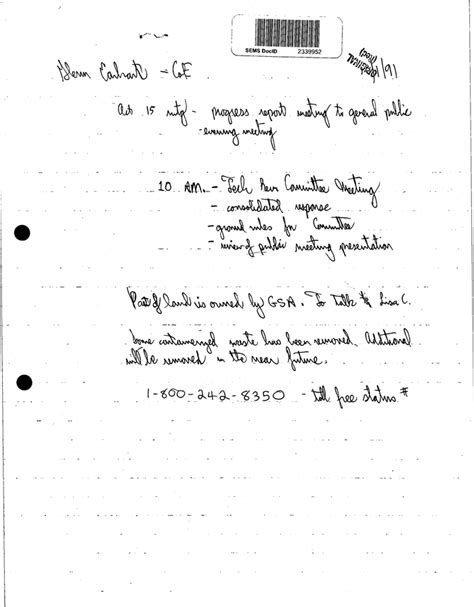 SEMS DocID 2339952
/91
Glenn Earhart - CoE
Oct 15 mtg - progress report meeting to general public
- evening meeting
10 AM. - Tech Rev Committee Meeting
- consolidated response
- ground rules for Committee
- view of public meeting presentation
Part of land is owned by GSA. To Talk to Lisa C.
Some containerized waste has been removed. Additional
will be removed in the near future.
1-800-242-8350 - toll free status #